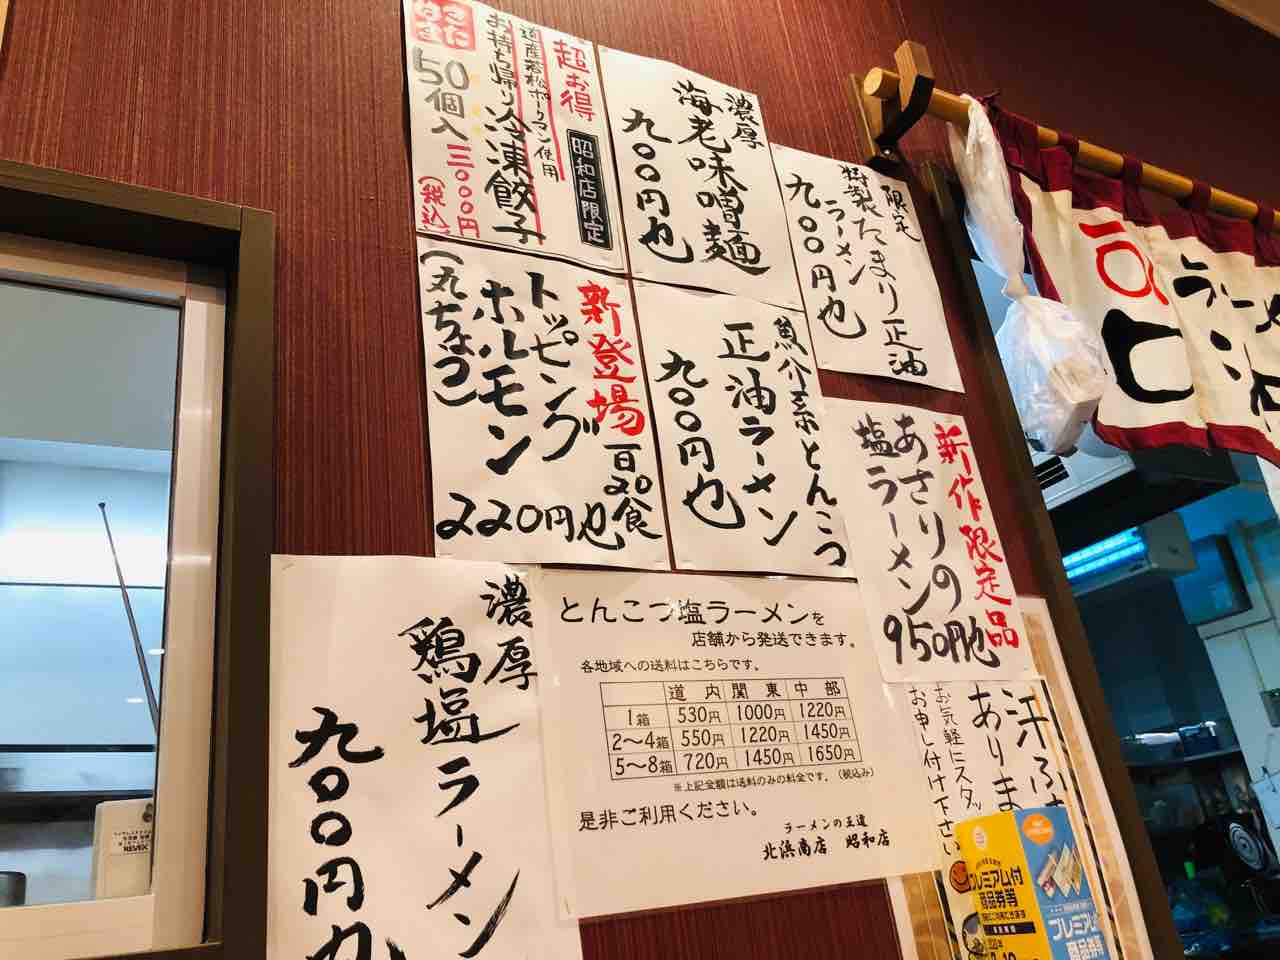 きた
はま
超お得
道産若松ポークマン使用
お持ち帰り冷凍餃子
50個入三〇〇〇円
(税込)
昭和店限定
濃厚
海老味噌麺
九〇〇円也
限定
特製たまり正油
ラーメン
九〇〇円也
新登場
百20食
トッピング
ホルモン
(丸ちょう)
220円也
魚介系とんこつ
正油ラーメン
九〇〇円也
新作限定品
あさりの
塩ラーメン
950円也
濃厚
鶏塩ラーメン
九〇〇円也
とんこつ塩ラーメンを
店舗から発送できます。
各地域への送料はこちらです。
道内 関東 中部
1箱 530円 1000円 1220円
2～4箱 550円 1220円 1450円
5～8箱 720円 1450円 1650円
※上記金額は送料のみの料金です。(税込み)
是非ご利用ください。
ラーメンの王道
北浜商店 昭和店
ありま
お気軽にスタッ
お申し付け下さい
プレミアム付
商品券等
プレミアム
商品券
ラーメ